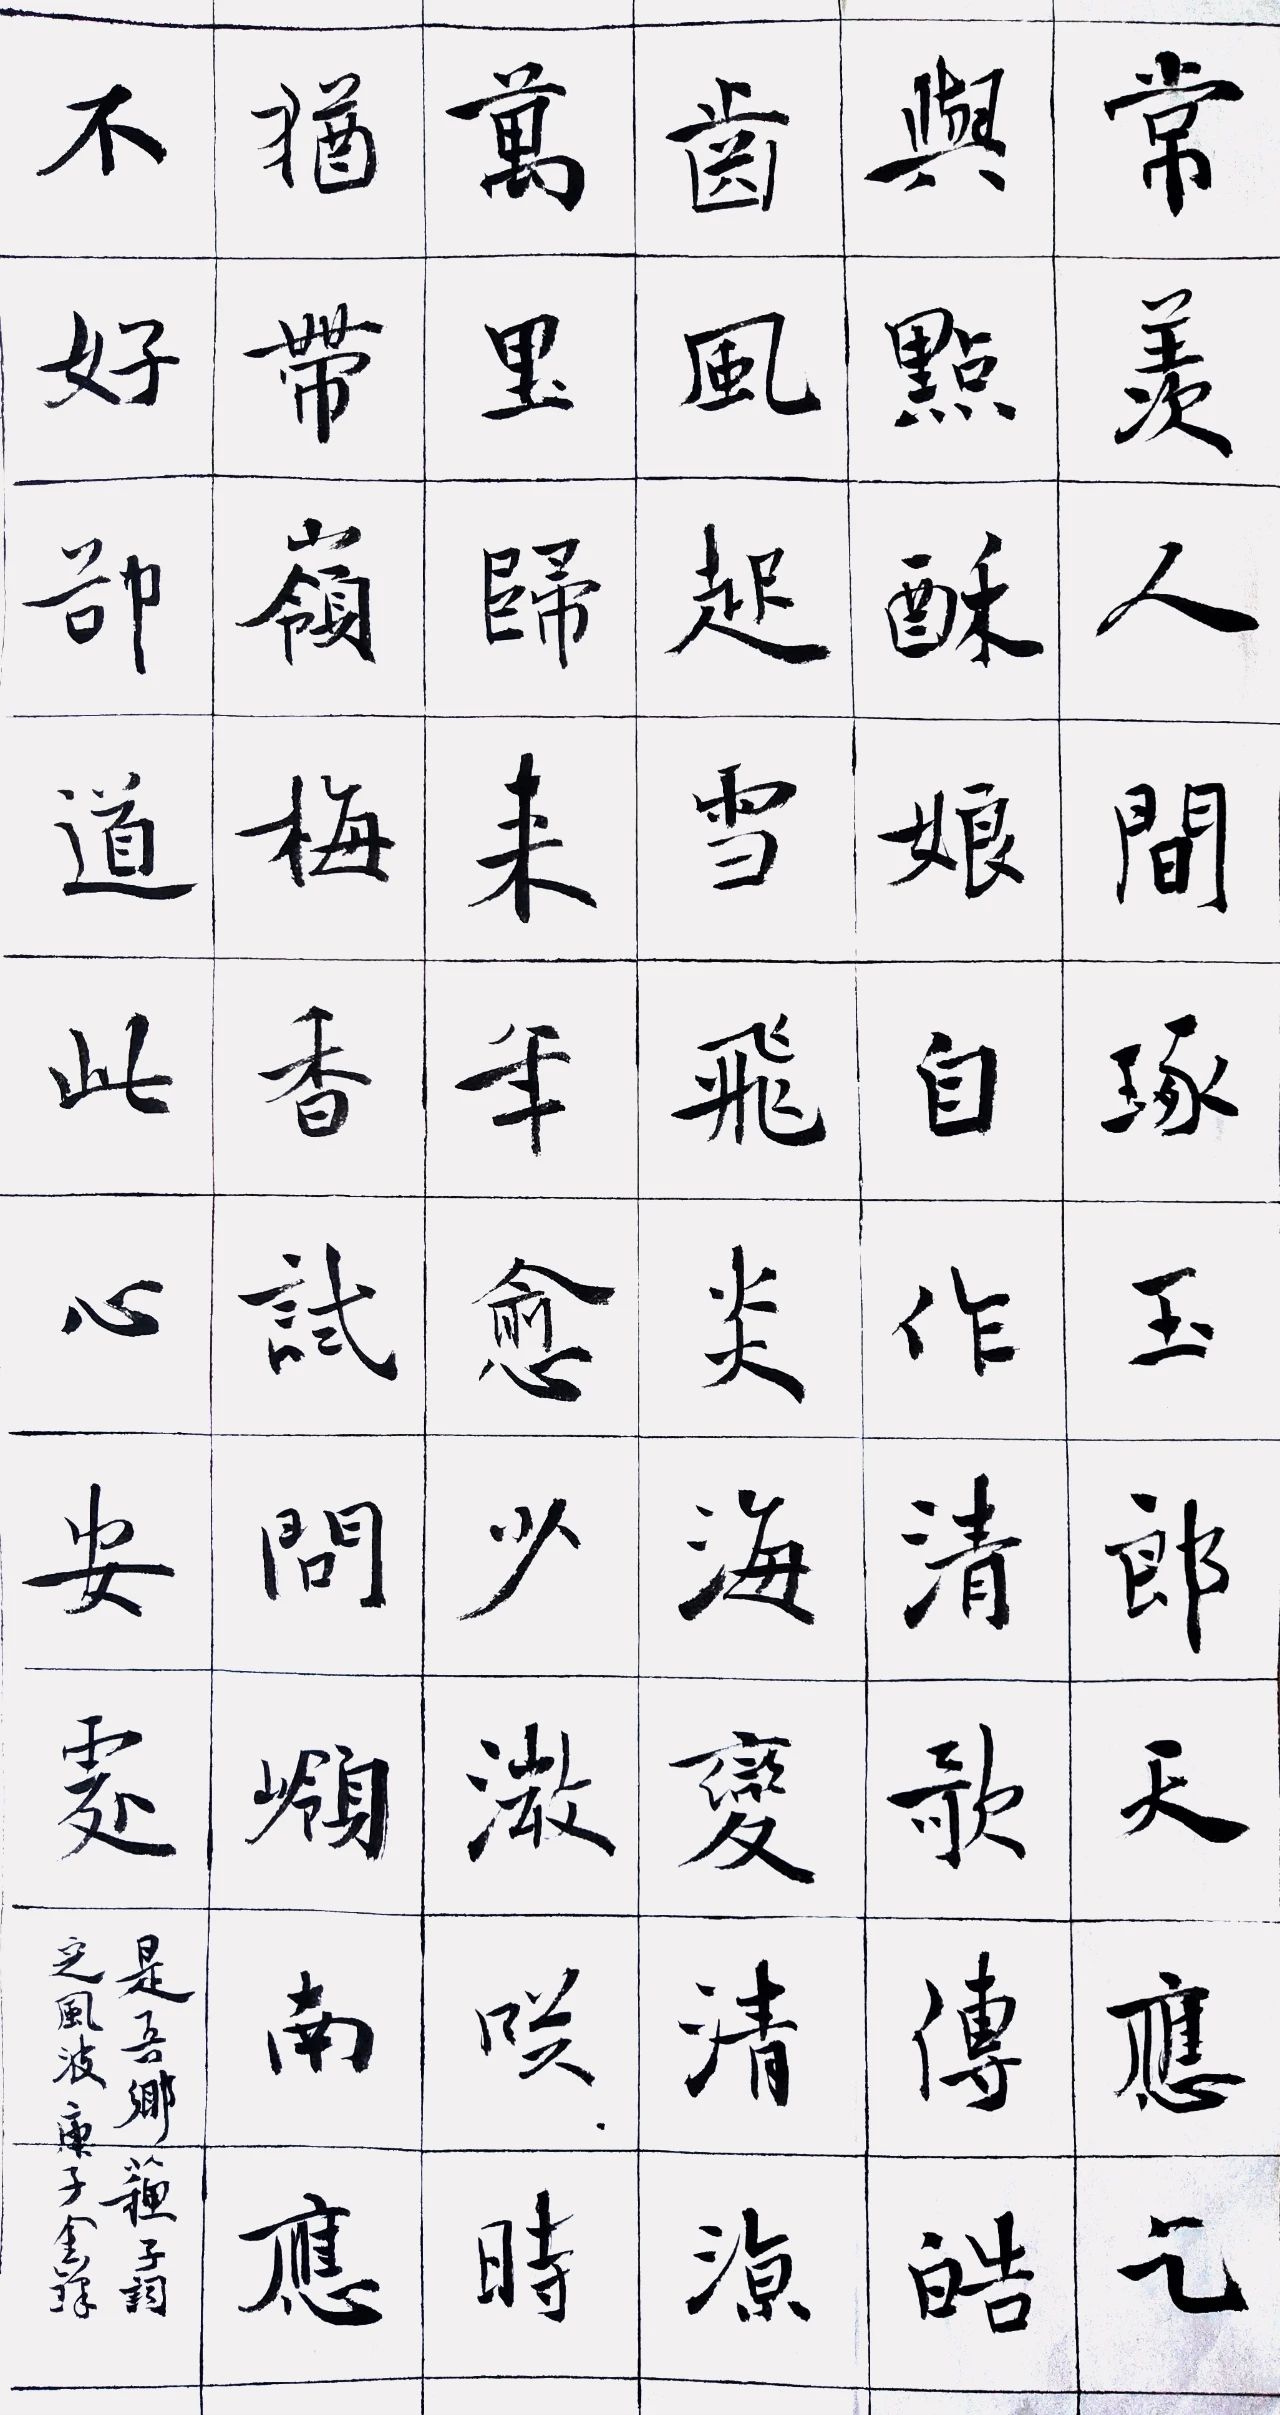 常羨人間琢玉郎天應乞
與點酥娘自作清歌傳皓
齒風起雪飛炎海變清涼
萬里歸来年愈少㣲咲時
猶带嶺梅香試問嶺南應
不好卻道此心安處
是吾鄉蘓子詞
定風波庚子金鐸